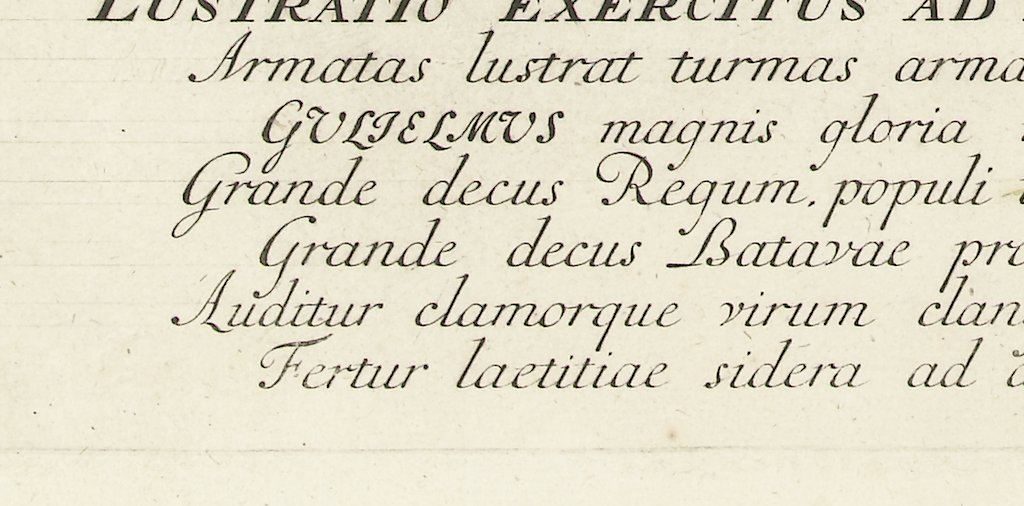 LUSTRATIO EXERCITUS AD
Armatas lustrat turmas arma
GULIELMUS magnis gloria
Grande decus Regum, populi
Grande decus Batavae pro
Auditur clamorque virum clan
Fertur laetitiae sidera ad